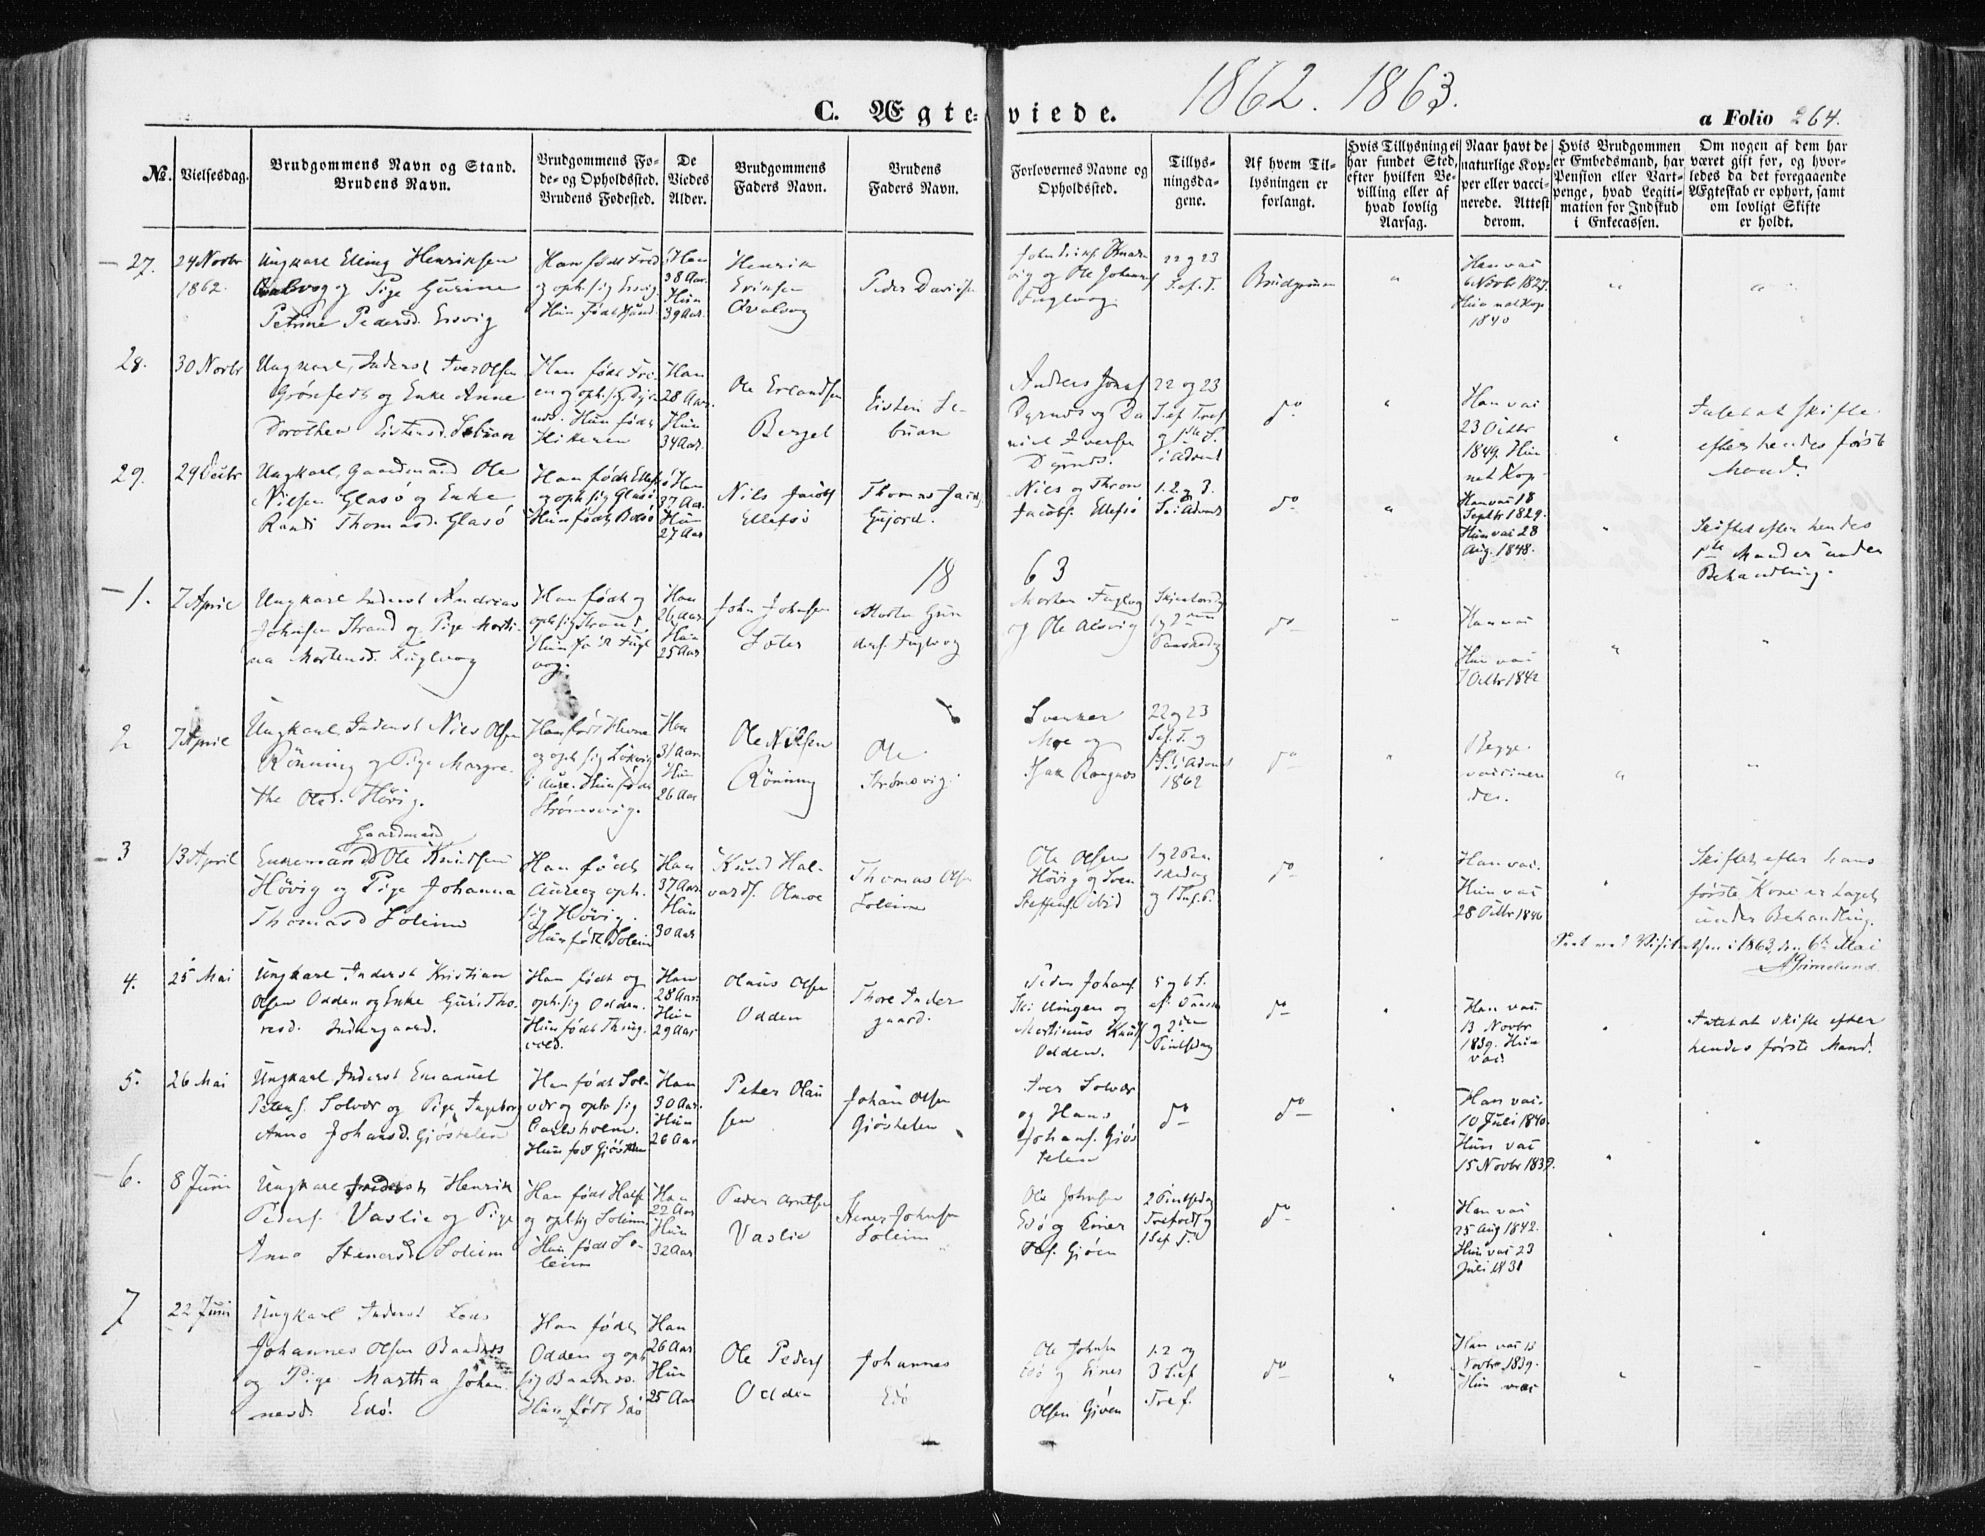 C. Ægteviede. 1862. 1863. a Folio 264.
No.
Vielsesdag.
Brudgommens Navn og Stand.
Brudens Navn.
Brudgommens Fo-
de- og Opholdssted.
Brudens Fødested.
De
Viedes
Alder.
Brudgommens
Faders Navn.
Brudens
Faders Navn.
Forlovernes Navne og
Opholdssted.
Tillys-
ningsda-
gene.
Af hvem Til-
lysningen er
forlangt.
Hvis Tillysning ei
har fundet Sted,
efter hvilken Be-
villing eller af
hvad lovlig
Aarsag.
Naar havt de
naturlige Kop-
per eller vacci-
nerede. Attest
derom.
Hvis Brudgommen
er Embedsmand, har
Pension eller Vart-
penge, hvad Legiti-
mation for Indskud
i Enkecassen.
Om nogen af dem har
været gift for, og hvor-
ledes da det foregaaende
Ægteskab er ophort, samt
om lovligt Skifte
er holdt.
27.
24 Novbr
1862.
Ungkarl Elling Henriksen
og Pige Gurine
Petrine Pedersd. Ersvig
og oph. sig Ersvig
Han
38 Aar.
Hun
39 Aar.
Henrik
Eriksen
Peder Davidsen
og Ole Johans
Fuglvog
22 og 23
S. ef. T.
Brudgommen
Han vac
6 Novbr 1827.
Hun nat Kop
1840
28.
30 Novbr
Ungkarl, Inderst Iver Olsen
Grønfedt og Enke Anne
Dorothea Eistensd.
Han født
Hun født
Hitteren
Han
28 Aar.
Hun
34 Aar.
Ole Erlandsen
Berget
Eistein Se-
buan
Anders Jonas
Dyrnes og Da
niel Iversen
Dyrnes.
22 og 23
S. ef. Tref
og 1ste S.
i Advent
do
Han vac
23 Octbr
1849. Hun
nat Kop
Intet at skifte
efter hendes første
Mand.
29.
29 Decbr
Ungkarl Gaardmand Ole
Nilsen Glasø og Enke
Randi Thomasd. Glasø
Han født Ellefsø
og oph. sig Glasø
Hun født Bolsø
Han
37 Aar.
Hun
27 Aar
Nils Jacobs
Ellefsø
Thomas
Gujord.
Nils og Thron
Jacobs. Ellefsø
1. 2. og 3.
S. i Advent
do
Han vac 18
Septbr 1829.
Hun vac 28
Aug. 1848.
Skiftet efter hendes
1ste Mand er under
Behandling.
18 63
1.
7 April
Ungkarl Inderst Andreas
Johnsen Strand og Pige Marti-
na Mortensd. Fuglvog
Han født og
oph. sig Strand.
Hun født Fugl
vog.
Han
26 Aar.
Hun
25 Aar
John Johnsen
Morten Gun
ders. Fuglvog
Morten Fuglvog
og Ole Alsvig
Skjærtorsdag
1 og 2den
Paaskedag
do
Han vac
Hun vac
7 Octbr 1842
2
7 April
Ungkarl Inderst Nils Olsen
Rönning og Pige Margre-
the Olsd. Hövig.
Han født Hevne
og oph. sig
i Aure. Hun født
Strömsvig.
Han
31 Aar.
Hun
26 Aar
Ole Nilsen
Röning
Ole
Strömsvig.
Svenker
Moe og
22 og 23
S. ef. T. og
1 S. i Advent
1862
do
Begge
vaccinere
des.
3
13 April
Gaardmand
Enkemand Ole Knudsen
Hövig og Pige Johanna
Thomasd Soleim
Han født
Aure og oph.
sig Hövig.
Hun født Soleim
Han
37 Aar
Hun
30 Aar
Knud Hal-
vards. Olmoe
Thomas Olsen
Soleim
Ole Olsen
Hövig og Sven
Steffens.
1 og 2 Paa-
skedag
og 1 S. ef. P.
do
Han vac.
Hun vac
28 Octbr 1846
Skiftet efter hans
første Kone er taget
under Behandling.
Seet ved Visitatsen i 1863, den 6te Mai
AGrimelund.
4.
25 Mai
Ungkarl Inderst Kristian
Olsen Odden og Enke Guri Tho-
resd. Indergaard.
Han født og
oph. sig Odden.
Hun født Thing-
vold.
Han
28 Aar.
Hun
29 Aar
Olaus Olsen
Odden
Thore Inder
gaard.
Peder Johans.
Skillingen og
Martinus Knuds
Odden.
5 og 6 S.
ef. Paaske
og 2den
Pintsedag
do
Han vac
13 Novbr
1839. Hun
vac.
Intet at skifte efter
hendes første Mand.
5.
26 Mai
Ungkarl Inderst Emanuel
Peters. Solvær og Pige Ingeborg
Anna Johansd. Gjöstelen
Han født Sol-
vær og oph. sig
Carlsholm.
Hun fød Gjöstelen
Han
30 Aar.
Hun
26 Aar
Peter Olau
sen
Johan Olsen
Gjöstelen
Iver Solvær
og Hans
Johans. Gjös
telen
do
do
Han vac.
10 Juli 1840.
Hun vac
15 Novbr 1839.
6.
8 Juni
Ungkarl Inderst Henrik
Peders. Vaslie og Pige
Anna Stenersd. Soleim
Han født Halse
og oph. sig Soleim
Hun født So-
leim
Han
22 Aar
Hun
32 Aar
Peder Arntsen
Vaslie
Stener Johnsen
Soleim
Ole Johnsen
Edö og Einer
Ols. Gjöen
2 Pintsedag
Trefold. og
1 S. ef. T.
do
Han vac
25 Aug 1842.
Hun vac 23
Juli 1831
7
22 Juni
Ungkarl Inderst Lods
Johannes Olsen Baadnes
og Pige Martha Johan-
nesd. Edö.
Han født
Odden og oph
sig Baadnes.
Hun født Edö
Han
26 Aar
Hun
25 Aar
Ole Peders
Odden
Johannes
Edö
Ole Johnsen
Edö og Einer
Olsen Gjöen
1. 2 og
3 S. ef
Tref.
do
Han vac 13
Novbr 1839.
Hun vac